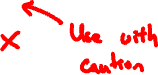 Use with
caution